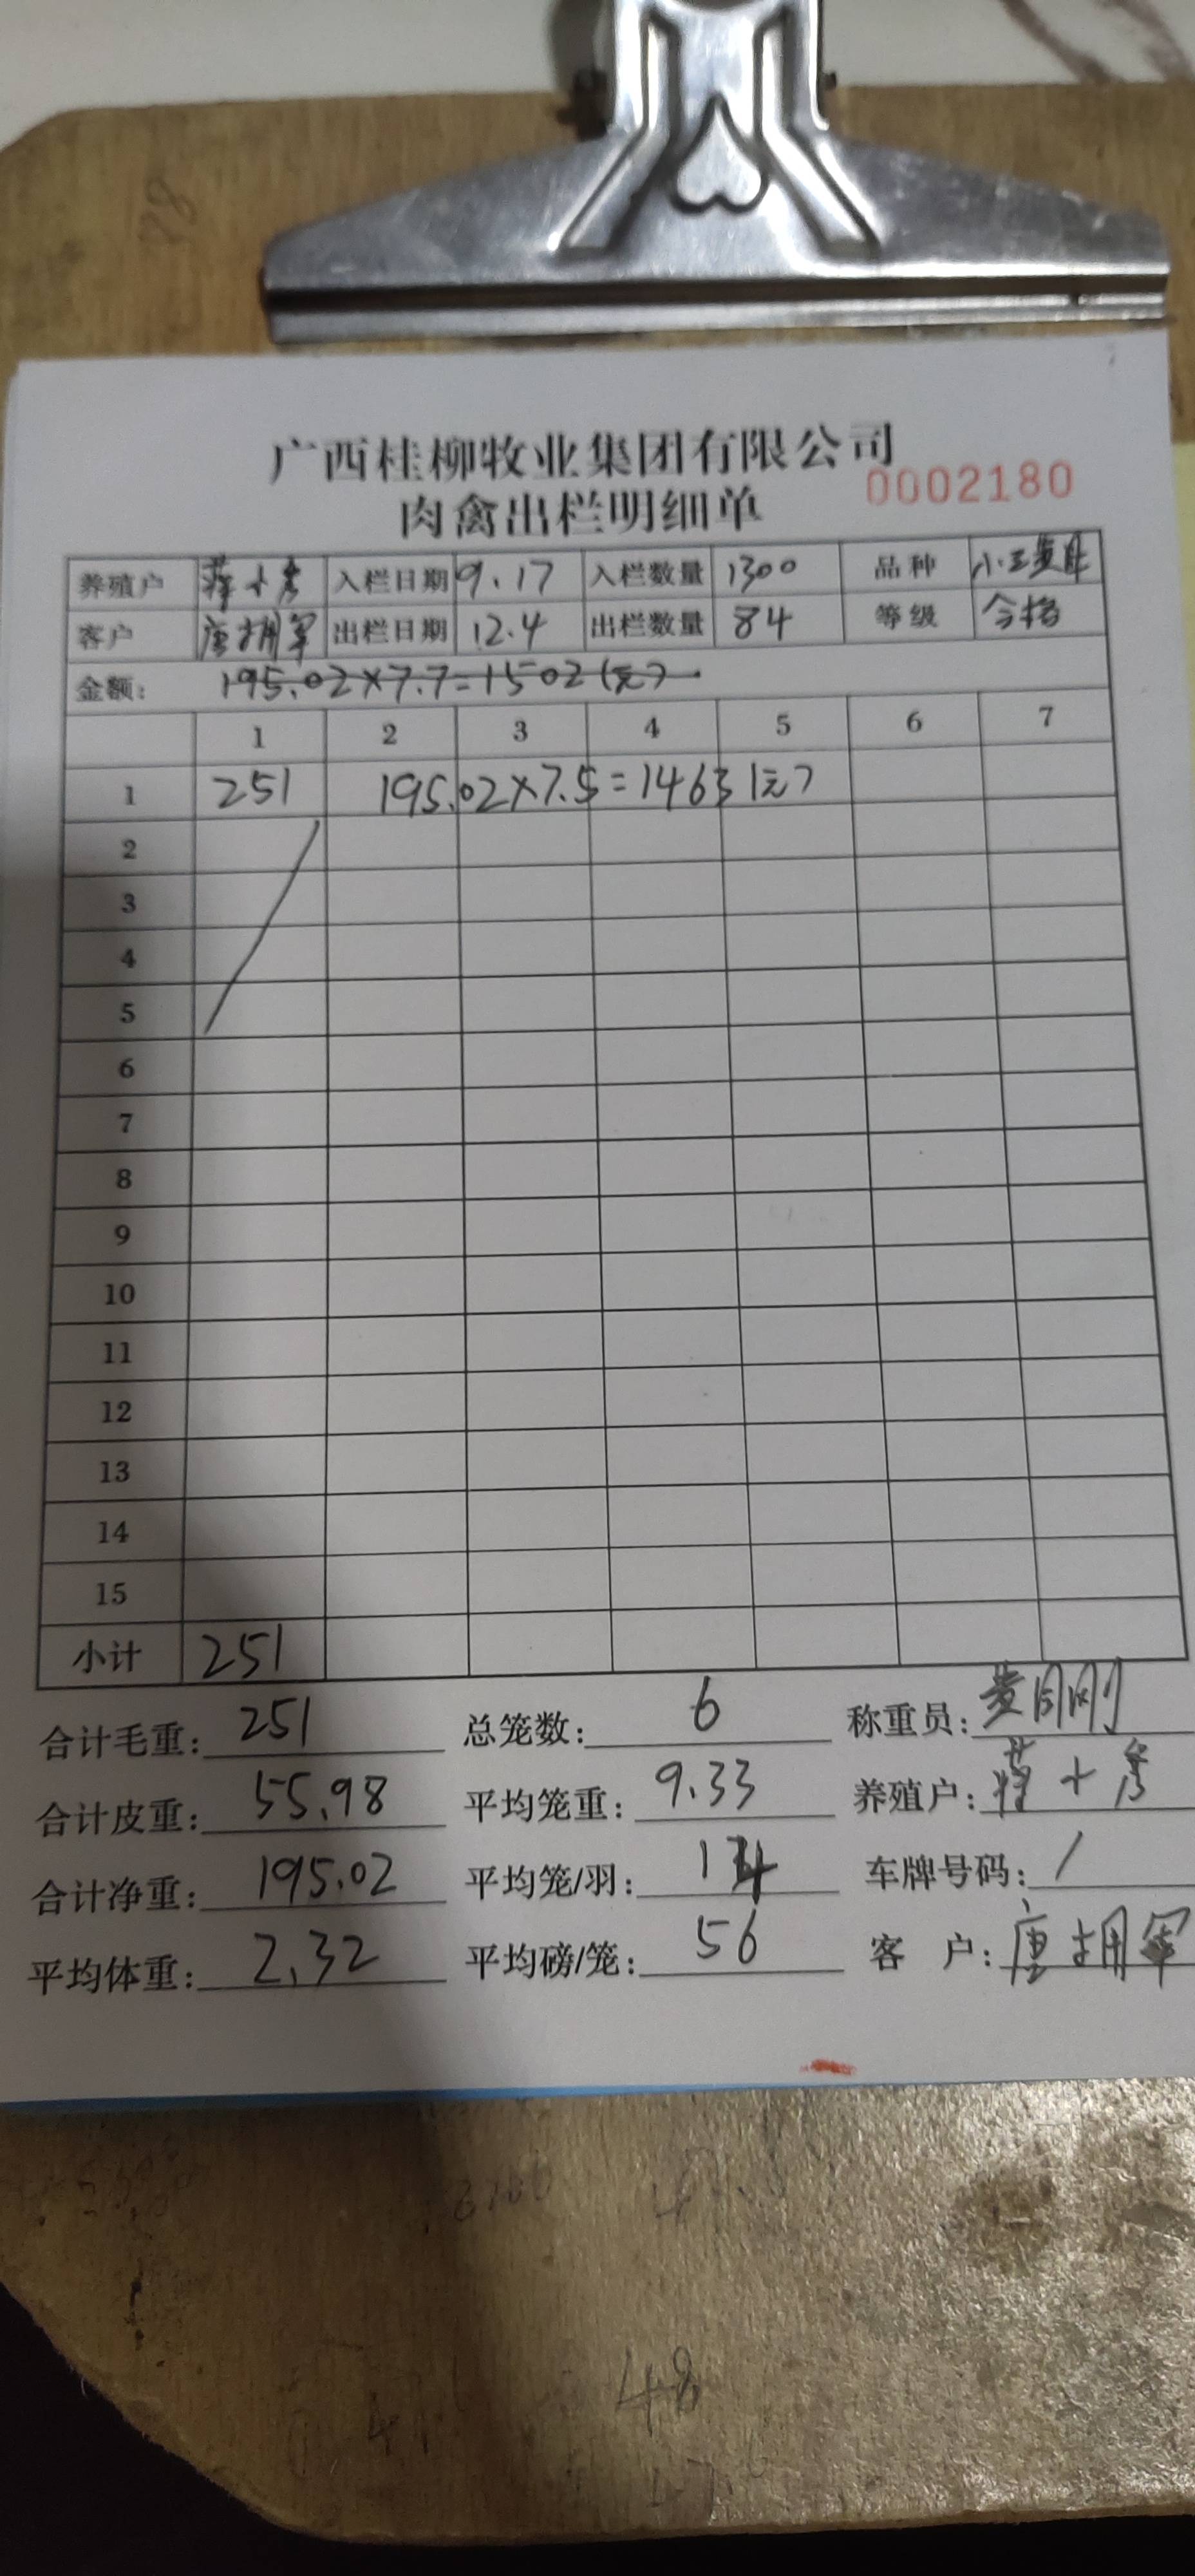 广西桂柳牧业集团有限公司
肉禽出栏明细单 0002180
养殖户 蒋十秀 入栏日期 9.17 入栏数量 1300 品种
客户 唐拥军 出栏日期 12.4 出栏数量 84 等级 合格
金额: 195.02×7.7=1502(元)
1 2 3 4 5 6 7
1 251 195.02×7.5=1463(元)
2
3
4
5
6
7
8
9
10
11
12
13
14
15
小计 251
合计毛重: 251 总笼数: 6 称重员:
合计皮重: 55.98 平均笼重: 9.33 养殖户: 蒋十秀
合计净重: 195.02 平均笼/羽: 14 车牌号码: /
平均体重: 2.32 平均磅/笼: 56 客户: 唐拥军
48